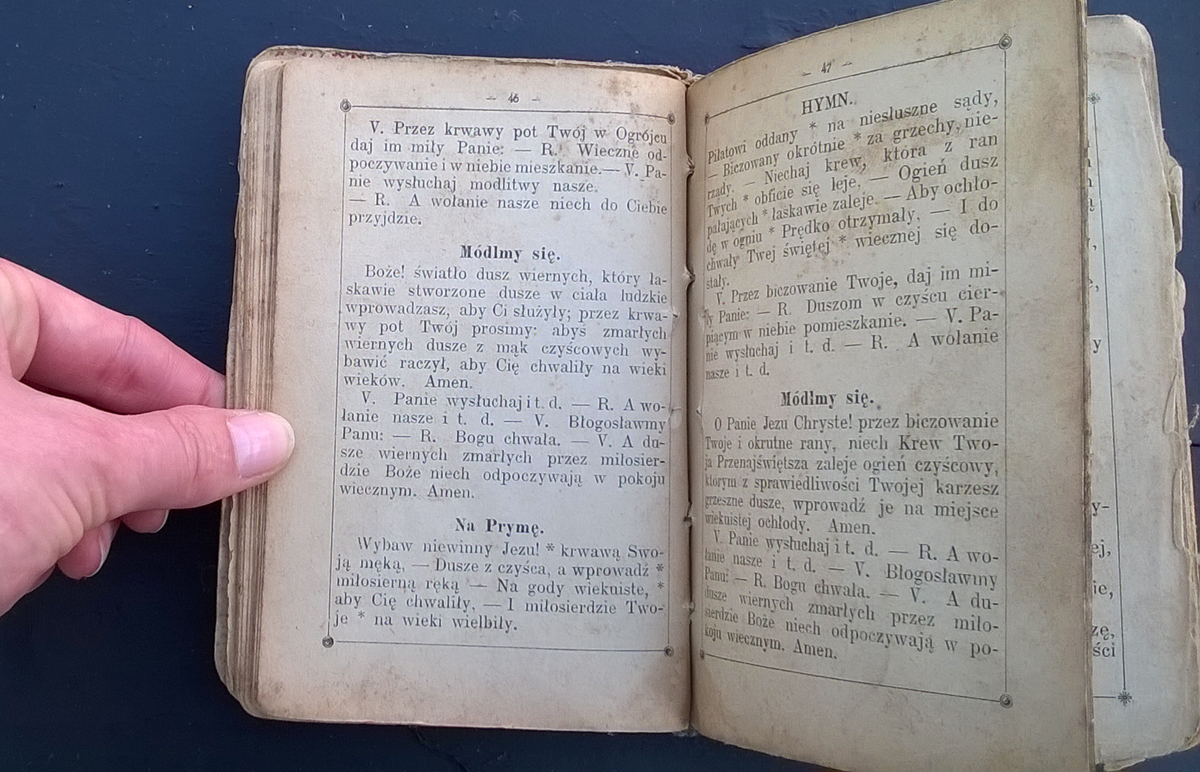 — 46 —
V. Przez krwawy pot Twój w Ogrójcu
daj im miły Panie: — R. Wieczne od-
poczywanie i w niebie mieszkanie.— V. Pa-
nie wysłuchaj modlitwy nasze.
— R. A wołanie nasze niech do Ciebie
przyjdzie.
Módlmy się.
Boże! światło dusz wiernych, który ła-
skawie stworzone dusze w ciała ludzkie
wprowadzasz, aby Ci służyły; przez krwa-
wy pot Twój prosimy: abyś zmarłych
wiernych dusze z mąk czyścowych wy-
bawić raczył, aby Cię chwaliły na wieki
wieków. Amen.
V. Panie wysłuchaj i t. d. — R. A wo-
łanie nasze i t. d. — V. Błogosławmy
Panu: — R. Bogu chwała. — V. A du-
sze wiernych zmarłych przez miłosier-
dzie Boże niech odpoczywają w pokoju
wiecznym. Amen.
Na Prymę.
Wybaw niewinny Jezu! * krwawą Swo-
ją męką, — Dusze z czyśca, a wprowadź *
miłosierną ręką — Na gody wiekuiste, *
aby Cię chwaliły, — I miłosierdzie Two-
je * na wieki wielbiły.
— 47 —
HYMN.
Piłatowi oddany * na niesłuszne sądy,
— Biczowany okrótnie * za grzechy, nie-
rządy. — Niechaj krew, która z ran
Twych * obficie się leje, — Ogień dusz
pałających * łaskawie zaleje. — Aby ochło-
dę w ogniu * Prędko otrzymały, — I do
chwały Twej świętej * wiecznej się do-
stały.
V. Przez biczowanie Twoje, daj im mi-
ły Panie: — R. Duszom w czyścu cier-
piącym w niebie pomieszkanie. — V. Pa-
nie wysłuchaj i t. d. — R. A wołanie
nasze i t. d.
Módlmy się.
O Panie Jezu Chryste! przez biczowanie
Twoje i okrutne rany, niech Krew Two-
ja Przenajświętsza zaleje ogień czyścowy,
którym z sprawiedliwości Twojej karzesz
grzeszne dusze, wprowadź je na miejsce
wiekuistej ochłody. Amen.
V. Panie wysłuchaj i t. d. — R. A wo-
łanie nasze i t. d. — V. Błogosławmy
Panu: — R. Bogu chwała. — V. A du-
dusze wiernych zmarłych przez miło-
sierdzie Boże niech odpoczywają w po-
koju wiecznym. Amen.